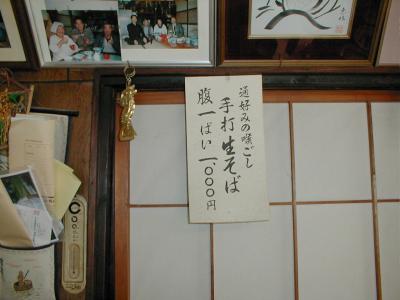 通好みの喉ごし
手打生そば
腹一ぱい一、〇〇〇円